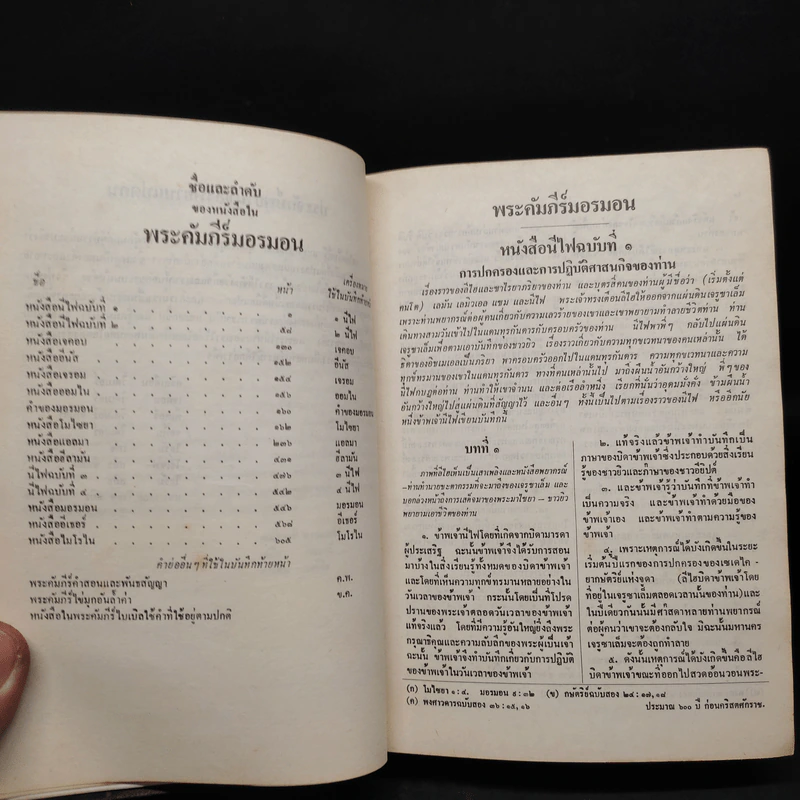 ชื่อและลำดับ
ของหนังสือใน
พระคัมภีร์มอรมอน
ชื่อ หน้า เครื่องหมาย
ใช้ในบันทึกท้ายหน้า
หนังสือนีไฟฉบับที่ ๑ ๑ ๑ นีไฟ
หนังสือนีไฟฉบับที่ ๒ ๕๘ ๒ นีไฟ
หนังสือเจคอบ ๑๓๐ เจคอบ
หนังสืออีนัส ๑๕๒ อีนัส
หนังสือเจรอม ๑๕๔ เจรอม
หนังสือออมไน ๑๕๖ ออมไน
คำของมอรมอน ๑๖๐ คำของมอรมอน
หนังสือโมไซยา ๑๖๒ โมไซยา
หนังสือแอลมา ๒๓๖ แอลมา
หนังสือฮีลามัน ๔๓๑ ฮีลามัน
นีไฟฉบับที่ ๓ ๔๗๖ ๓ นีไฟ
นีไฟฉบับที่ ๔ ๕๔๒ ๔ นีไฟ
หนังสือมอรมอน ๕๔๖ มอรมอน
หนังสืออีเธอร์ ๕๖๗ อีเธอร์
หนังสือโมโรไน ๖๐๕ โมโรไน
คำย่ออื่นๆที่ใช้ในบันทึกท้ายหน้า
พระคัมภีร์คำสอนและพันธสัญญา ค.พ.
พระคัมภีร์ไข่มุกอันล้ำค่า ข.ค.
หนังสือในพระคัมภีร์ไบเบิลใช้คำที่ใช้อยู่ตามปกติ
พระคัมภีร์มอรมอน
หนังสือนีไฟฉบับที่ ๑
การปกครองและการปฏิบัติศาสนกิจของท่าน
เรื่องราวของลีไฮและซาไรยาภริยาของท่าน และบุตรสี่คนของท่านผู้มีชื่อว่า (เริ่มตั้งแต่
คนโต) เลมัน เลมิวเอล แซม และนีไฟ พระเจ้าทรงเตือนลีไฮให้ออกจากแผ่นดินเจรูซาเล็ม
เพราะท่านพยากรณ์ต่อผู้คนเกี่ยวกับความเลวร้ายของเขาและเขาพยายามทำลายชีวิตท่าน ท่าน
เดินทางสามวันเข้าไปในแดนทุรกันดารกับครอบครัวของท่าน นีไฟพาพี่ๆ กลับไปแผ่นดิน
เจรูซาเล็มเพื่อตามเอาบันทึกของชาวยิว เรื่องราวเกี่ยวกับความทุกขเวทนาของคนเหล่านั้น ได้
ธิดาของอิชเมเอลเป็นภริยา พาครอบครัวออกไปในแดนทุรกันดาร ความทุกขเวทนาและความ
ทุกข์ทรมานของเขาในแดนทุรกันดาร ทางที่คนเหล่านั้นไป มาถึงผืนน้ำอันกว้างใหญ่ พี่ๆของ
นีไฟกบฏต่อท่าน ท่านทำให้เขาจำนน และต่อเรือลำหนึ่ง เรียกที่นั่นว่าอุดมมั่งคั่ง ข้ามผืนน้ำ
อันกว้างใหญ่ไปสู่แผ่นดินที่สัญญาไว้ และอื่นๆ ทั้งนี้เป็นไปตามเรื่องราวของนีไฟ หรืออีกนัย
หนึ่งข้าพเจ้านีไฟเขียนบันทึกนี้
บทที่ ๑
ภาพที่ลีไฮเห็นเป็นเสาเพลิงและหนังสือพยากรณ์
-ท่านทำนายชะตากรรมที่จะมาถึงของเจรูซาเล็ม และ
บอกล่วงหน้าถึงการเสด็จมาของพระมาไซยา - ชาวยิว
พยายามเอาชีวิตของท่าน
๑. ข้าพเจ้านีไฟโดยที่เกิดจากบิดามารดา
ผู้ประเสริฐ ฉะนั้นข้าพเจ้าจึงได้รับการสอน
มาบ้างในสิ่งเรียนรู้ทั้งหมดของบิดาข้าพเจ้า
และโดยที่เห็นความทุกข์ทรมานหลายอย่างใน
วันเวลาของข้าพเจ้า กระนั้นโดยเป็นที่โปรด
ปรานของพระเจ้าตลอดวันเวลาของข้าพเจ้า
แท้จริงแล้ว โดยที่มีความรู้อันใหญ่ยิ่งถึงพระ
กรุณาธิคุณและความลับลึกของพระผู้เป็นเจ้า
ฉะนั้น ข้าพเจ้าจึงทำบันทึกเกี่ยวกับการปฏิบัติ
ของข้าพเจ้าในวันเวลาของข้าพเจ้า
๒. แท้จริงแล้วข้าพเจ้าทำบันทึกเป็น
ภาษาของบิดาข้าพเจ้าซึ่งประกอบด้วยสิ่งเรียน
รู้ของชาวยิวและภาษาของชาวอียิปต์
๓. และข้าพเจ้ารู้ว่าบันทึกที่ข้าพเจ้าทำ
เป็นความจริง และข้าพเจ้าทำด้วยมือของ
ข้าพเจ้าเอง และข้าพเจ้าทำตามความรู้ของ
ข้าพเจ้า
๔. เพราะเหตุการณ์ได้บังเกิดขึ้นในระยะ
เริ่มต้นปีแรกของการปกครองของเซเดไค-
ยากษัตริย์แห่งจูดา (ลีไฮบิดาข้าพเจ้าโดย
ที่อยู่ในเจรูซาเล็มตลอดเวลานั้นของท่าน)และ
ในปีเดียวกันนั้นมีศาสดาหลายท่านพยากรณ์
ต่อผู้คนว่าเขาจะต้องกลับใจ มิฉะนั้นมหานคร
เจรูซาเล็มจะต้องถูกทำลาย
๕. ดังนั้นเหตุการณ์ได้บังเกิดขึ้นคือลีไฮ
บิดาข้าพเจ้าขณะที่ออกไปสวดอ้อนวอนพระ-
(ก) โมไซยา ๑:๔. มอรมอน ๙:๓๒ (ข) กษัตริย์ฉบับสอง ๒๔:๑๗,๑๘
(ค) พงศาวดารฉบับสอง ๓๖:๑๕,๑๖ ประมาณ ๖๐๐ ปี ก่อนคริสตศักราช.